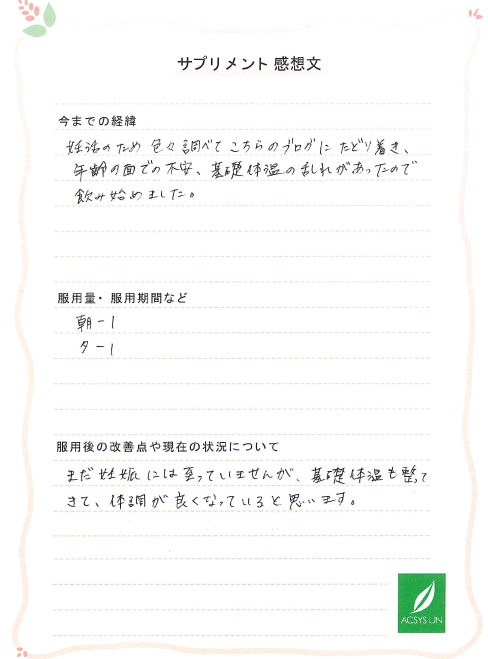 サプリメント 感想文
今までの経緯
妊活のため 色々調べて こちらのブログに たどり着き、
年齢の面での不安、基礎体温の乱れがあったので
飲み始めました。
服用量・服用期間など
朝-1
夕-1
服用後の改善点や現在の状況について
まだ妊娠には至っていませんが、基礎体温も整って
きて、体調が良くなっていると思います。
ACSYS UN